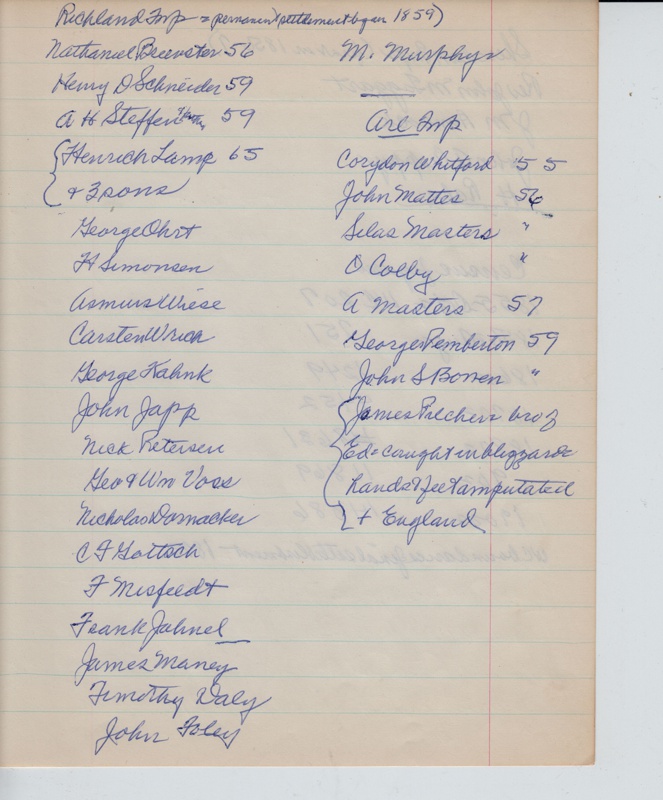 Richland Twp = permanent settlement began 1859)
Nathaniel Brewster 56
Henry D Schneider 59
A H Steffen 59
Henrich Lamp 65
+ 3 sons
George Ohrt
H Simonsen
Asmus Wiese
Carsten Wrich
George Kahnk
John Japp
Nick Petersen
Geo & Wm Voss
Nicholas Domacker
C F Gottsch
F Misfeldt
Frank Jahnel
James Maney
Timothy Daly
John Foley
M. Murphy
Arl Twp
Corydon Whitford 55
John Mattes 56
Silas Masters "
O Colby "
A Masters 57
George Pemberton 59
John S Bowen "
James Pilcher & bro of
Ed = caught in blizzard =
hands & feet amputated
+ England